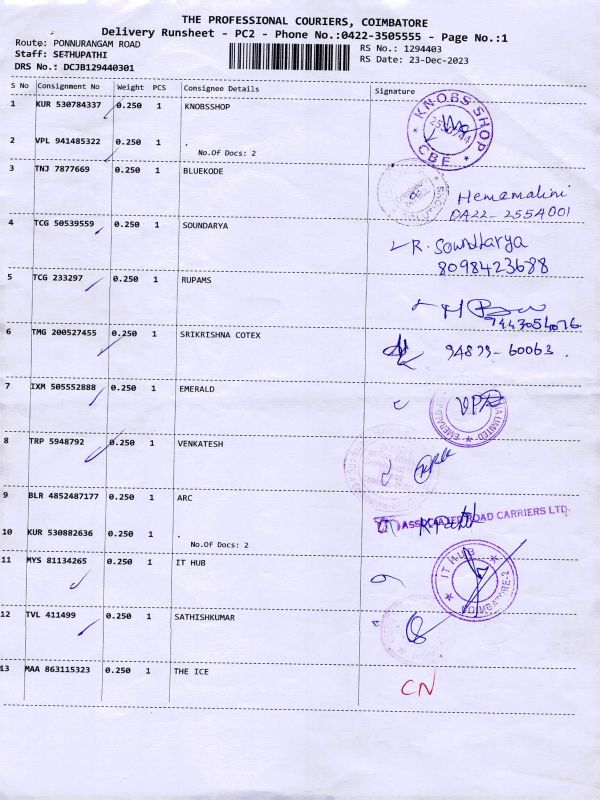 THE PROFESSIONAL COURIERS, COIMBATORE
Delivery Runsheet - PC2 - Phone No.:0422-3505555 - Page No.:1
Route: PONNURANGAM ROAD
Staff: SETHUPATHI
RS No.: 1294403
DRS No.: DCJB129440301
RS Date: 23-Dec-2023
S No Consignment No Weight PCS Consignee Details Signature
1 KUR 530784337 0.250 1 KNOBSSHOP
KNOBS SHOP
CBE
2 VPL 941485322 0.250 1 .
No.Of Docs: 2
3 TNJ 7877669 0.250 1 BLUEKODE
Hemamalini
4 TCG 50539559 0.250 1 SOUNDARYA
R. Soundarya
8098423688
5 TCG 233297 0.250 1 RUPAMS
6 TMG 200527455 0.250 1 SRIKRISHNA COTEX
94879-60063.
7 IXM 505552888 0.250 1 EMERALD
8 TRP 5948792 0.250 1 VENKATESH
9 BLR 4852487177 0.250 1 ARC
ASSOCIATED ROAD CARRIERS LTD
10 KUR 530882636 0.250 1 .
No.Of Docs: 2
11 MYS 81134265 0.250 1 IT HUB
IT HUB
COIMBATORE-2
12 TVL 411499 0.250 1 SATHISHKUMAR
13 MAA 863115323 0.250 1 THE ICE
CN